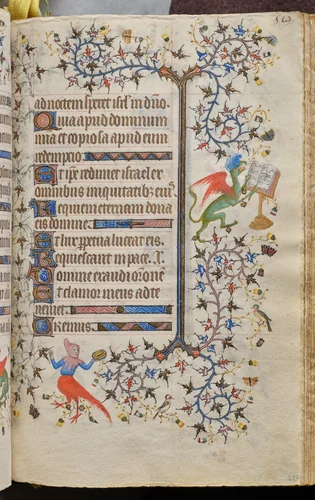 ad noctem speret isrl in dño.
Quia apud dominum
mia et copiosa apud eum
redempcio.
Et ipe redimet israel ex
omnibus iniquitatibz eius.
Requiem eternam dona
eis domine.
Et lux perpetua luceat eis.
Requiescant in pace. X.
Domine exaudi orõnẽ
Et clamor meus ad te
veniet.
Oremus.